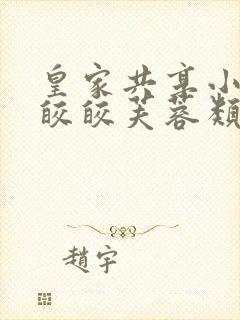 皇家共享小
皎皎芙蓉類
趙宇